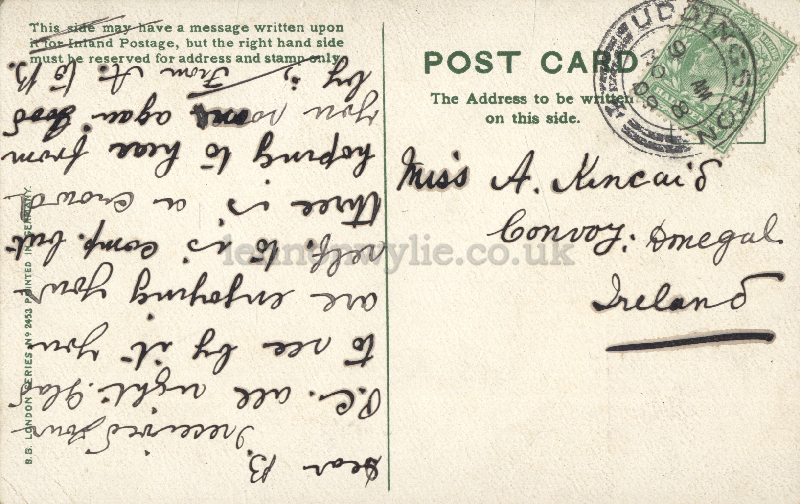 This side may have a message written upon
it for Inland Postage, but the right hand side
must be reserved for address and stamp only.
POST CARD
The Address to be written
on this side.
UDDINGSTON
9 AM
NO 8
09
Miss A. Kincaid
Convoy. Donegal.
Ireland
Dear B.
I received your
P.C. all right. Glad
to see by it you
are enjoying your
self. to is comp. but
three is a crowd
hoping to hear from
you soon again good
by is
From A. to B.
B.B. LONDON SERIES Nº 2453 PRINTED IN GERMANY.
lennonwylie.co.uk